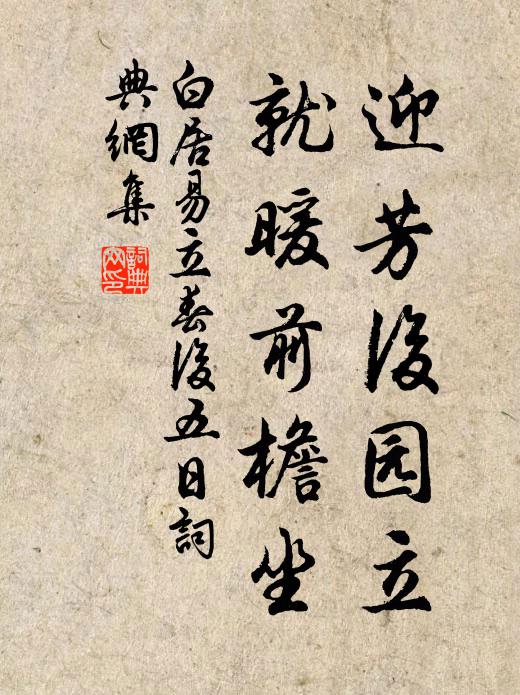 迎芳後园立
就暖前檐坐
白居易立春後五日詞
典網集
詞典